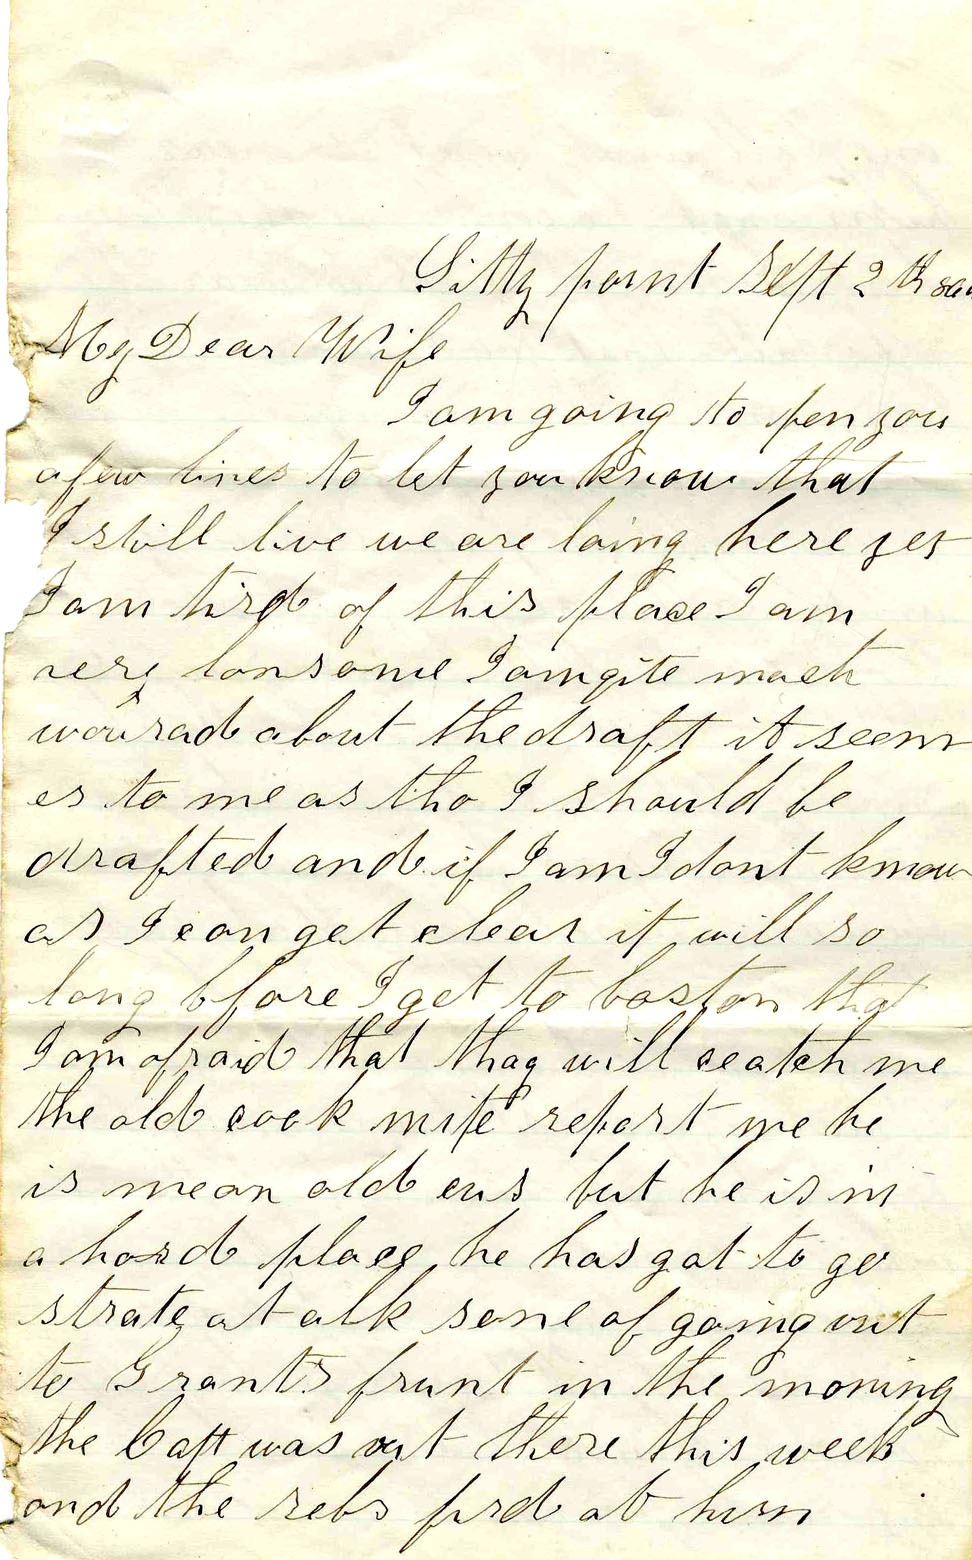 Sitty point Sept 2 th
My Dear Wife
I am going to pen you
a few lines to let you know that
I still live we are laing here yet
I am tird of this place I am
very lonsome I am qite mach
wourad about the draft it seem
es to me as tho I should be
drafted and if I am I dont know
as I can get clear it will so
long bfore I get to boston that
I am afraid that thay will ceatch me
the old cook mite report me he
is mean old cus but he is in
a hard place he has got to go
strate at alk some of going out
to Grants frunt in the moning
the Capt was out there this week
and the rebs fird at him